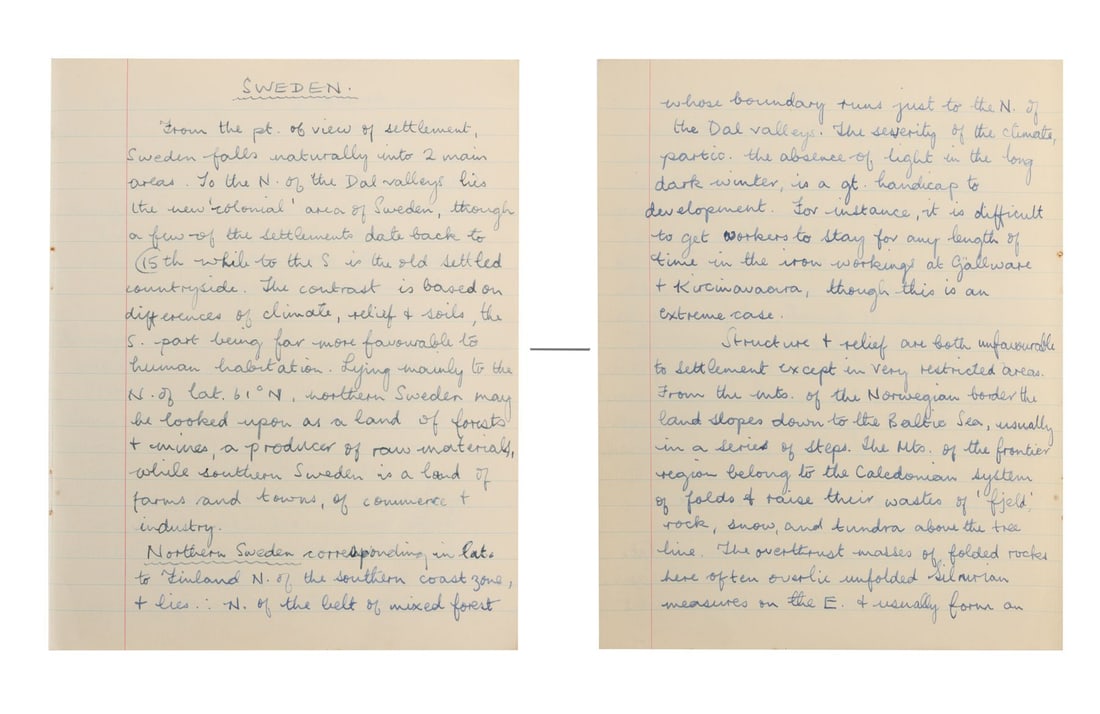 SWEDEN.
From the pt. of view of settlement,
Sweden falls naturally into 2 main
areas. To the N. of the Dal valleys lies
the new 'colonial' area of Sweden, though
a few of the settlements date back to
15th while to the S is the old settled
countryside. The contrast is based on
differences of climate, relief & soils, the
S. part being far more favourable to
human habitation. Lying mainly to the
N. of lat. 61°N, northern Sweden may
be looked upon as a land of forests
+ mines, a producer of raw materials,
while southern Sweden is a land of
farms and towns, of commerce +
industry.
Northern Sweden corresponding in lat.
to Finland N. of the southern coast zone,
+ lies ∴ N. of the belt of mixed forest
whose boundary runs just to the N. of
the Dal valleys. The severity of the climate,
partic. the absence of light in the long
dark winter, is a gt. handicap to
development. For instance, it is difficult
to get workers to stay for any length of
time in the iron workings at Gällivare
+ Kirunavaara, though this is an
extreme case.
Structure + relief are both unfavourable
to settlement except in very restricted areas.
From the mts. of the Norwegian border the
land slopes down to the Baltic Sea, usually
in a series of steps. The Mts. of the frontier
region belong to the Caledonian system
of folds & raise their wastes of 'fjeld',
rock, snow, and tundra above the tree
line. The overthrust masses of folded rocks
here often overlie unfolded Silurian
measures on the E. + usually form an